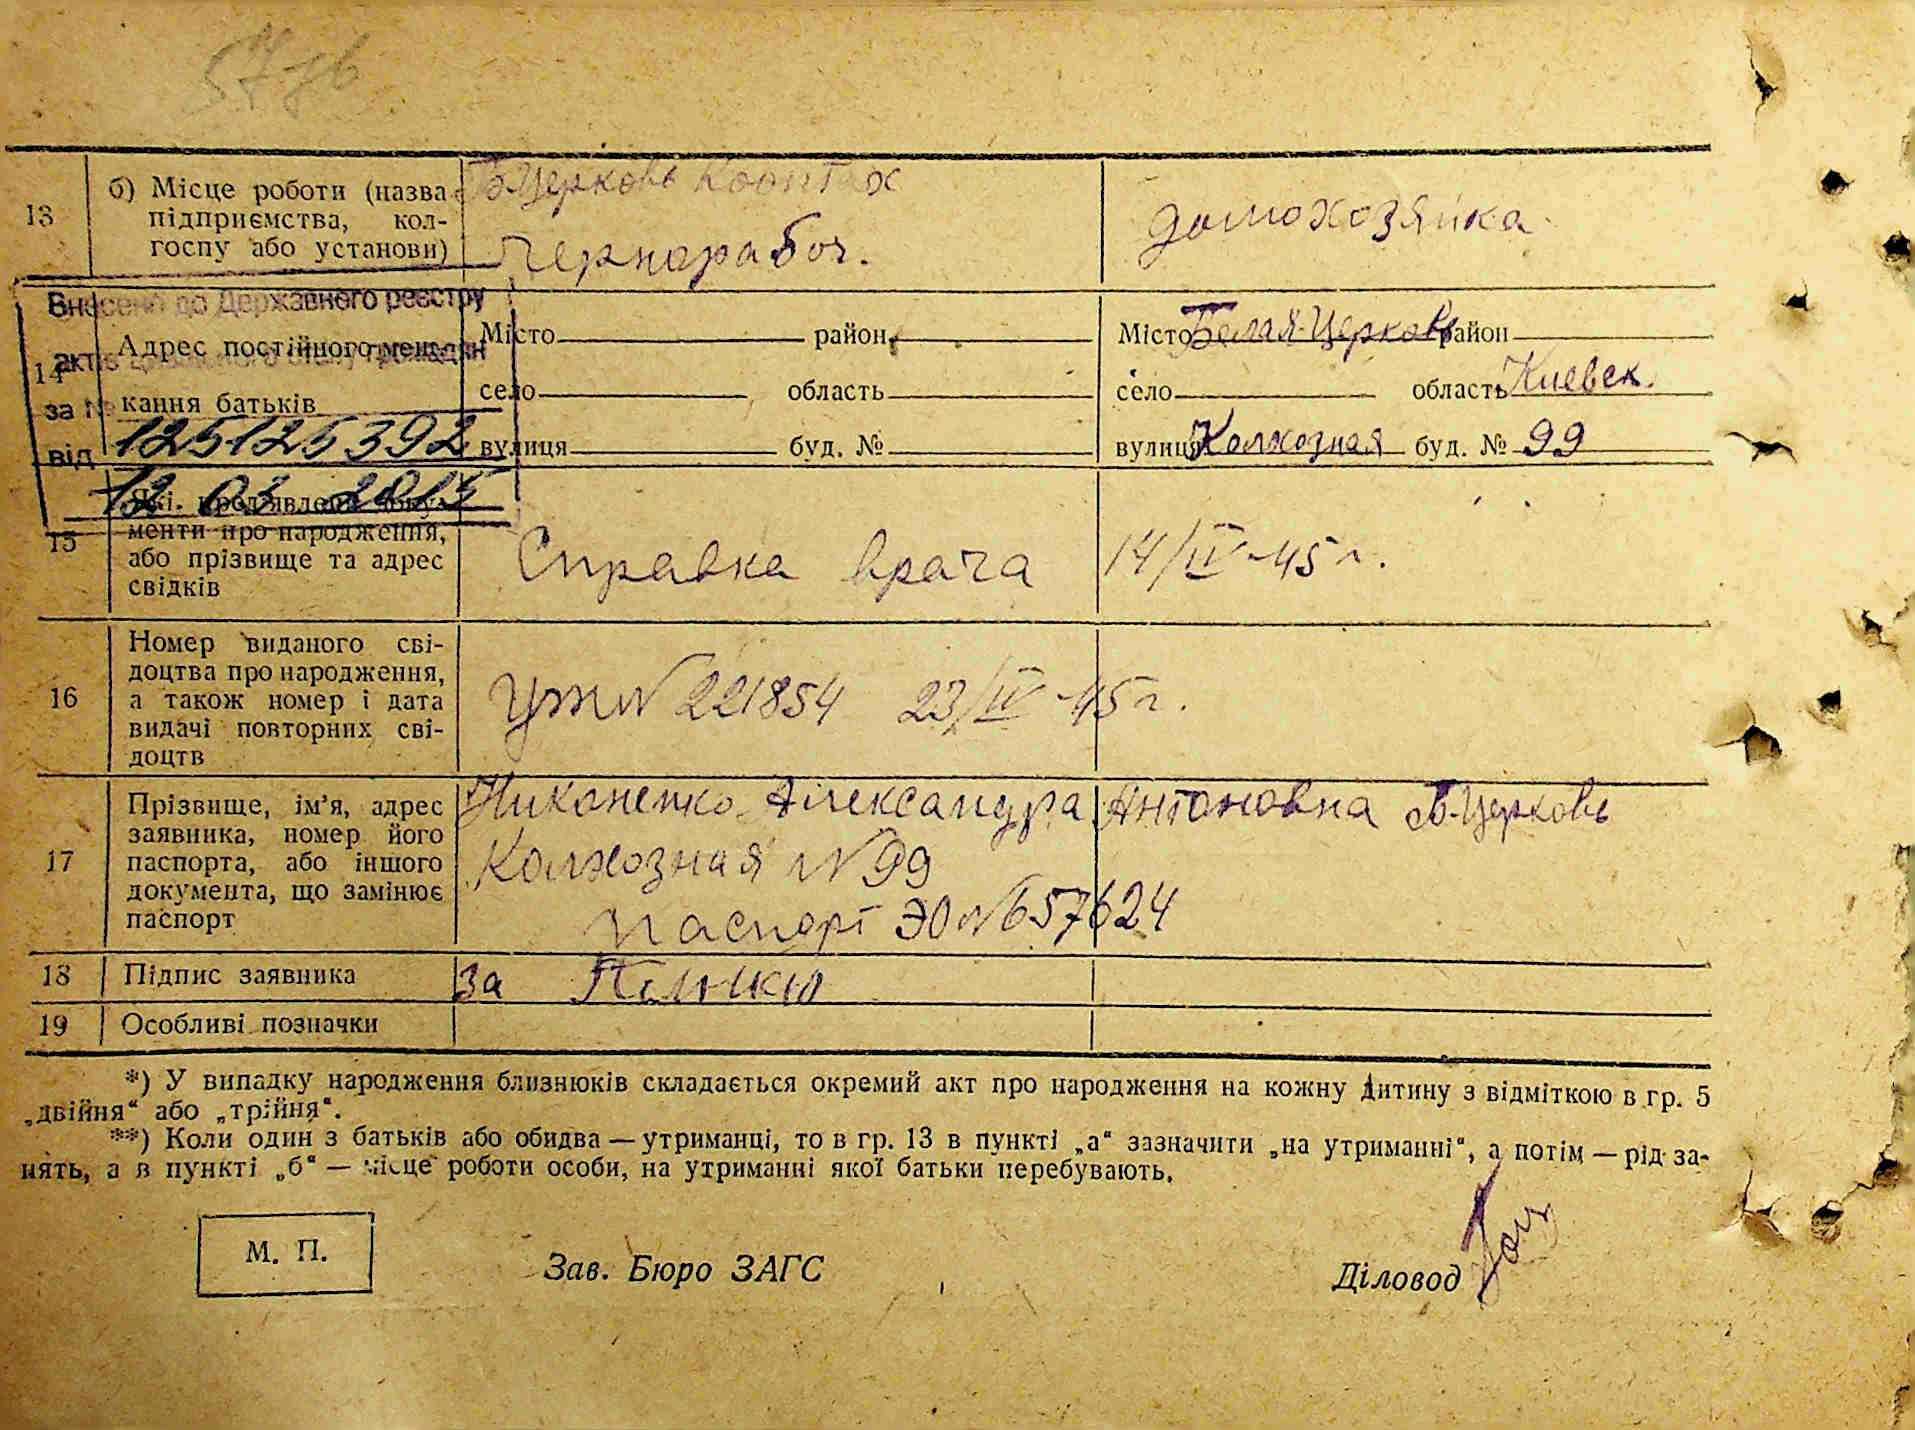 13 б) Місце роботи (назва підприємства, колгоспу або установи)
Б-Церковь
Чернорабоч.
домохозяйка
Внесено до Державного реєстру
актів цивільного стану громадян
за №
125125392
від
12 03
14 Адрес постійного мешкання батьків
Місто район
село область
вулиця буд. №
Місто Белая-Церковь район
село область Киевск.
вулиця Колхозная буд. № 99
15 Які пред'явлено документи про народження, або прізвище та адрес свідків
Справка врача 14/IV-45 г.
16 Номер виданого свідоцтва про народження, а також номер і дата видачі повторних свідоцтв
N 221854 23/IV-45 г.
17 Прізвище, ім'я, адрес заявника, номер його паспорта, або іншого документа, що замінює паспорт
Никоненко Александра Антоновна Б-Церковь
Колхозная N 99
паспорт ЭО N 657624
18 Підпис заявника
За
19 Особливі позначки
*) У випадку народження близнюків складається окремий акт про народження на кожну дитину з відміткою в гр. 5
„двійня“ або „трійня“.
**) Коли один з батьків або обидва — утриманці, то в гр. 13 в пункті „а“ зазначити „на утриманні“, а потім — рід за-
нять, а в пункті „б“ — місце роботи особи, на утриманні якої батьки перебувають.
М. П.
Зав. Бюро ЗАГС
Діловод